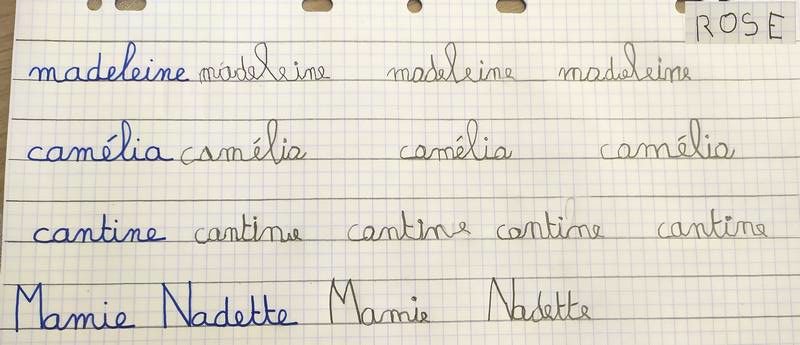 ROSE
madeleine madeleine madeleine madeleine
camélia camélia camélia camélia
cantine cantine cantine cantine cantine
Mamie Nadette Mamie Nadette